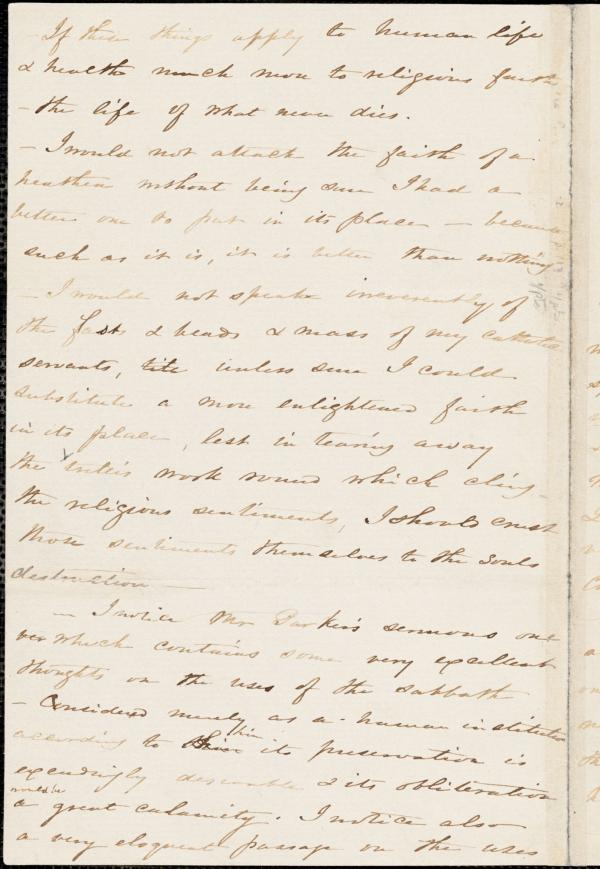 - If these things apply to human life
& health much more to religious faith
- the life of what never dies.
- I would not attack the faith of a
heathen without being sure I had a
better one to put in its place - because
such as it is, it is better than nothing
- I would not speak irreverently of
the fasts & beads & mass of my catholic
servants, unless sure I could
substitute a more enlightened faith
in its place, lest in tearing away
the work round which cling
the religious sentiments, I should crush
those sentiments themselves to the souls
destruction -
- I notice Mr Parker's sermons one
which contains some very excellent
thoughts on the uses of the sabbath
- Considered merely as a human institution
according to him its preservation is
exceedingly desirable & its obliteration
would be
a great calamity. I notice also
a very eloquent passage on the uses